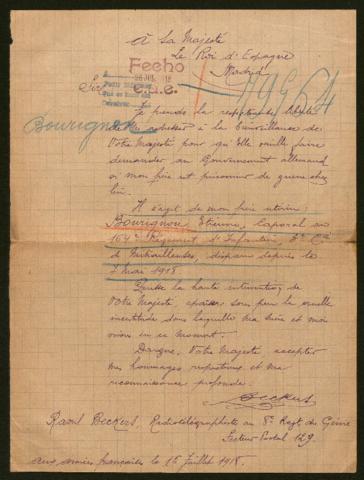 à Sa Majesté
Le Roi d'Espagne
Madrid
Fecho
26 JUL 1918
e.a.e.
Sire
Bourignon
Je prends la respectueuse liberté
de à la bienveillance de
Votre Majesté pour qu'Elle veuille faire
demander au Gouvernement allemand
si mon frère est prisonnier de guerre chez
lui.
Il s'agit de mon frère utérin:
Bourignon, Etienne, Caporal au
164e Régiment d'Infanterie, 3e Cie
de Mitrailleuses, disparu depuis le
7 mai 1918
Puisse la haute intervention de
Votre Majesté, apaiser sous peu la cruelle
incertitude dans laquelle ma mère et moi
vivons en ce moment.
Daigne, Votre Majesté accepter
mes hommages respectueux et ma
reconnaissance profonde.
Beckers
Raoul Beckers, Radiotélégraphiste au 8e Regt du Génie
Secteur Postal 129.
aux armées françaises le 15 Juillet 1918.